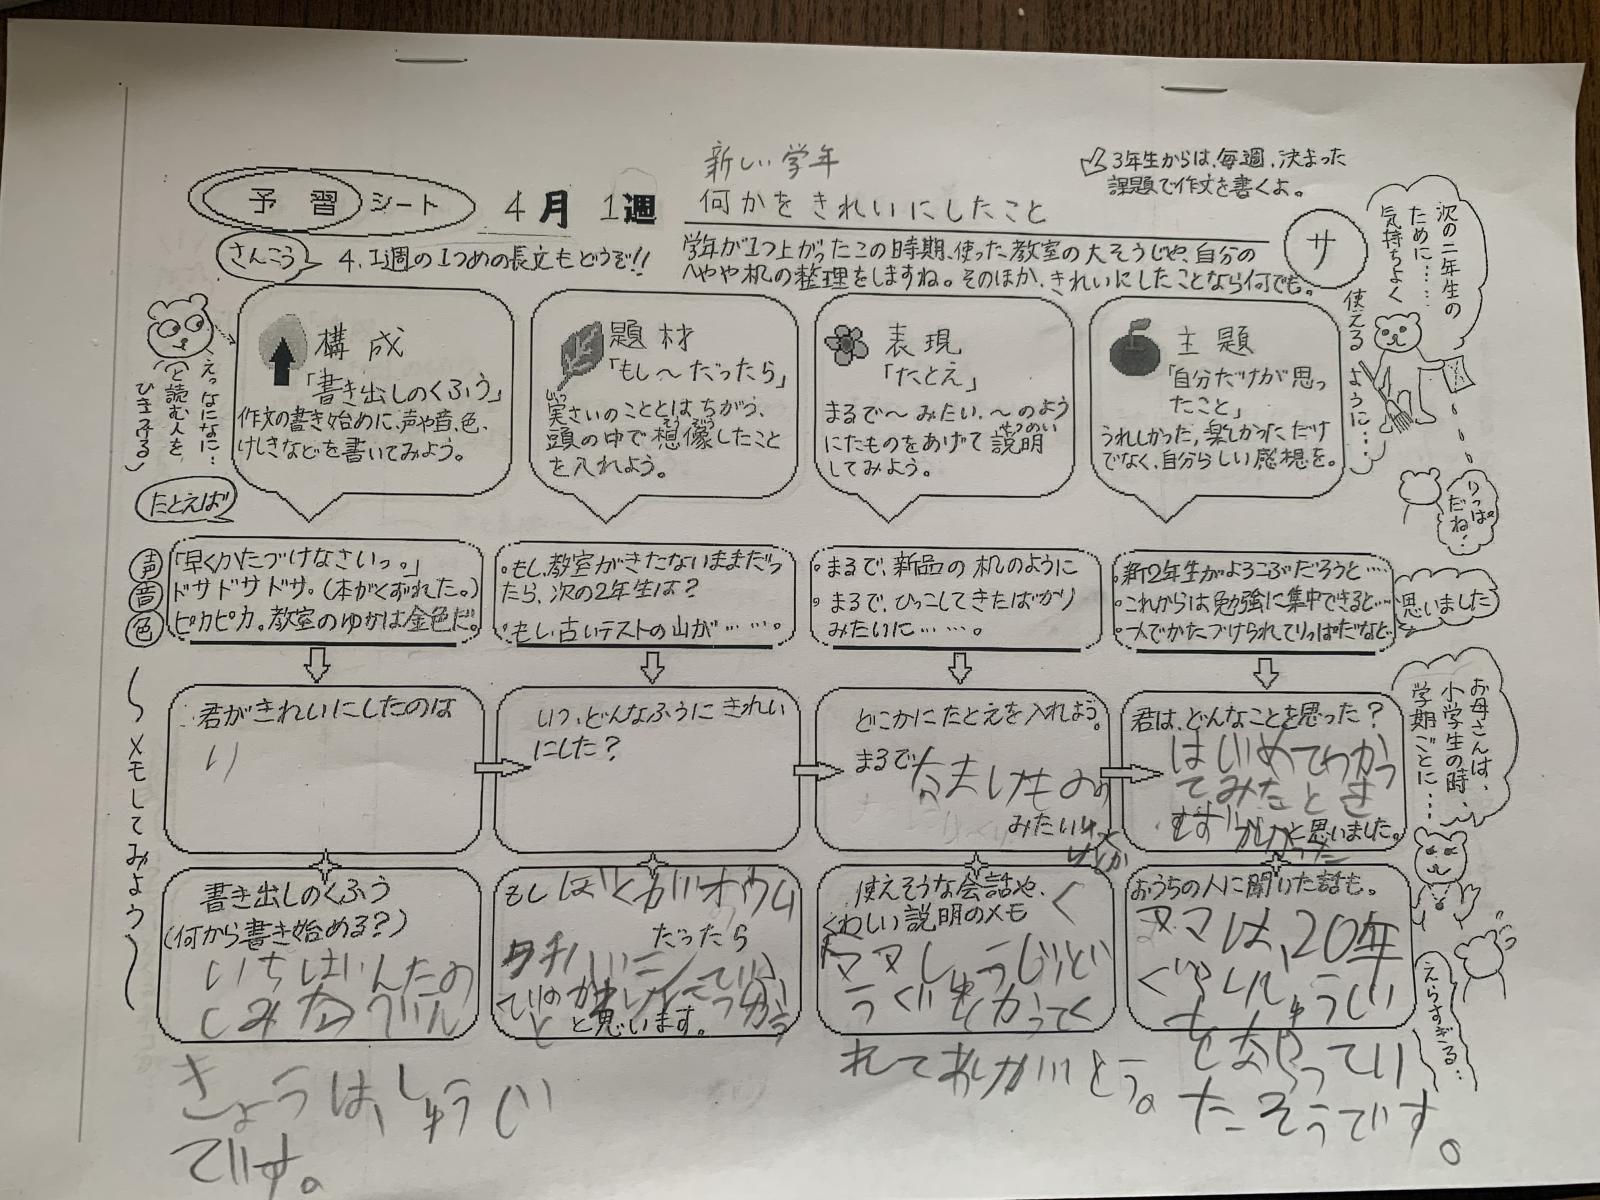 予習シート
4月 1週
新しい学年
何かをきれいにしたこと
3年生からは、毎週、決まった
課題で作文を書くよ。
さんこう
4.1週の1つめの長文もどうぞ!!
学年が1つ上がったこの時期、使った教室の大そうじや、自分の
へやや机の整理をしますね。そのほか、きれいにしたことなら何でも。
サ
次の二年生の
ために……
気持ちよく
使える
ように…
えっなになに…
と読む人を
ひきつける
構成
「書き出しのくふう」
作文の書き始めに、声や音、色、
けしきなどを書いてみよう。
題材
「もし〜だったら」
じっ
実さいのこととはちがう、
そう ぞう
頭の中で想像したこと
を入れよう。
表現
「たとえ」
まるで〜みたい、〜のよう
せつめい
にたものをあげて説明
してみよう。
主題
「自分だけが思っ
たこと」
うれしかった、楽しかっただけ
でなく、自分らしい感想を。
りっぱ
だね!
たとえば
声
音
色
「早くかたづけなさいっ。」
ドサドサドサ。(本がくずれた。)
ピカピカ。教室のゆかは金色だ。
・もし、教室がきたないままだっ
たら、次の2年生は?
・もし、古いテストの山が……。
・まるで、新品の机のように
・まるで、ひっこしてきたばかり
みたいに……。
・新2年生がよろこぶだろうと…
・これからは勉強に集中できると…
・一人でかたづけられてりっぱだなと…
思いました
〜メモしてみよう〜
君がきれいにしたのは
いつ、どんなふうにきれい
にした?
どこかにたとえを入れよう。
まるで
みたい
君は、どんなことを思った?
はじめてわかっ
てみたとき
と思いました。
お母さんは、
小学生の時、
学期ごとに…
書き出しのくふう
(何から書き始める?)
いちばんたの
しみな
もし ぼくがオウム
だったら
と思います。
使えそうな会話や、
くわしい説明のメモ
れてありがとう。
おうちの人に聞いた話も。
ママは、20年
ぐらいしゅうじ
をやってい
たそうです。
えらすぎる…
きょうは、しゅうじ
です。